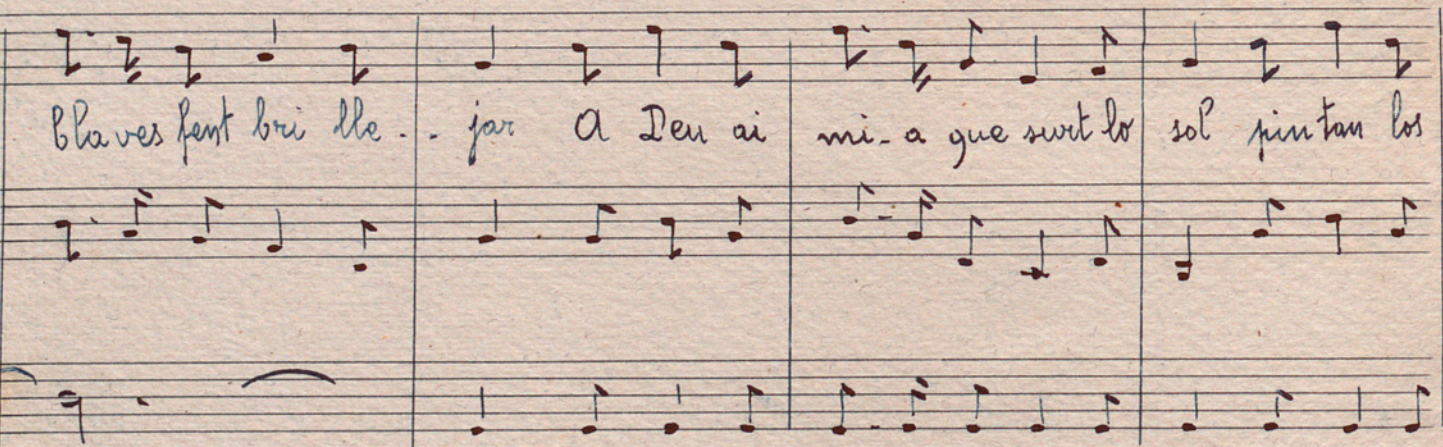 blaves fent bri lle - - jar A Deu ai mi - a que surt lo sol pin tan los